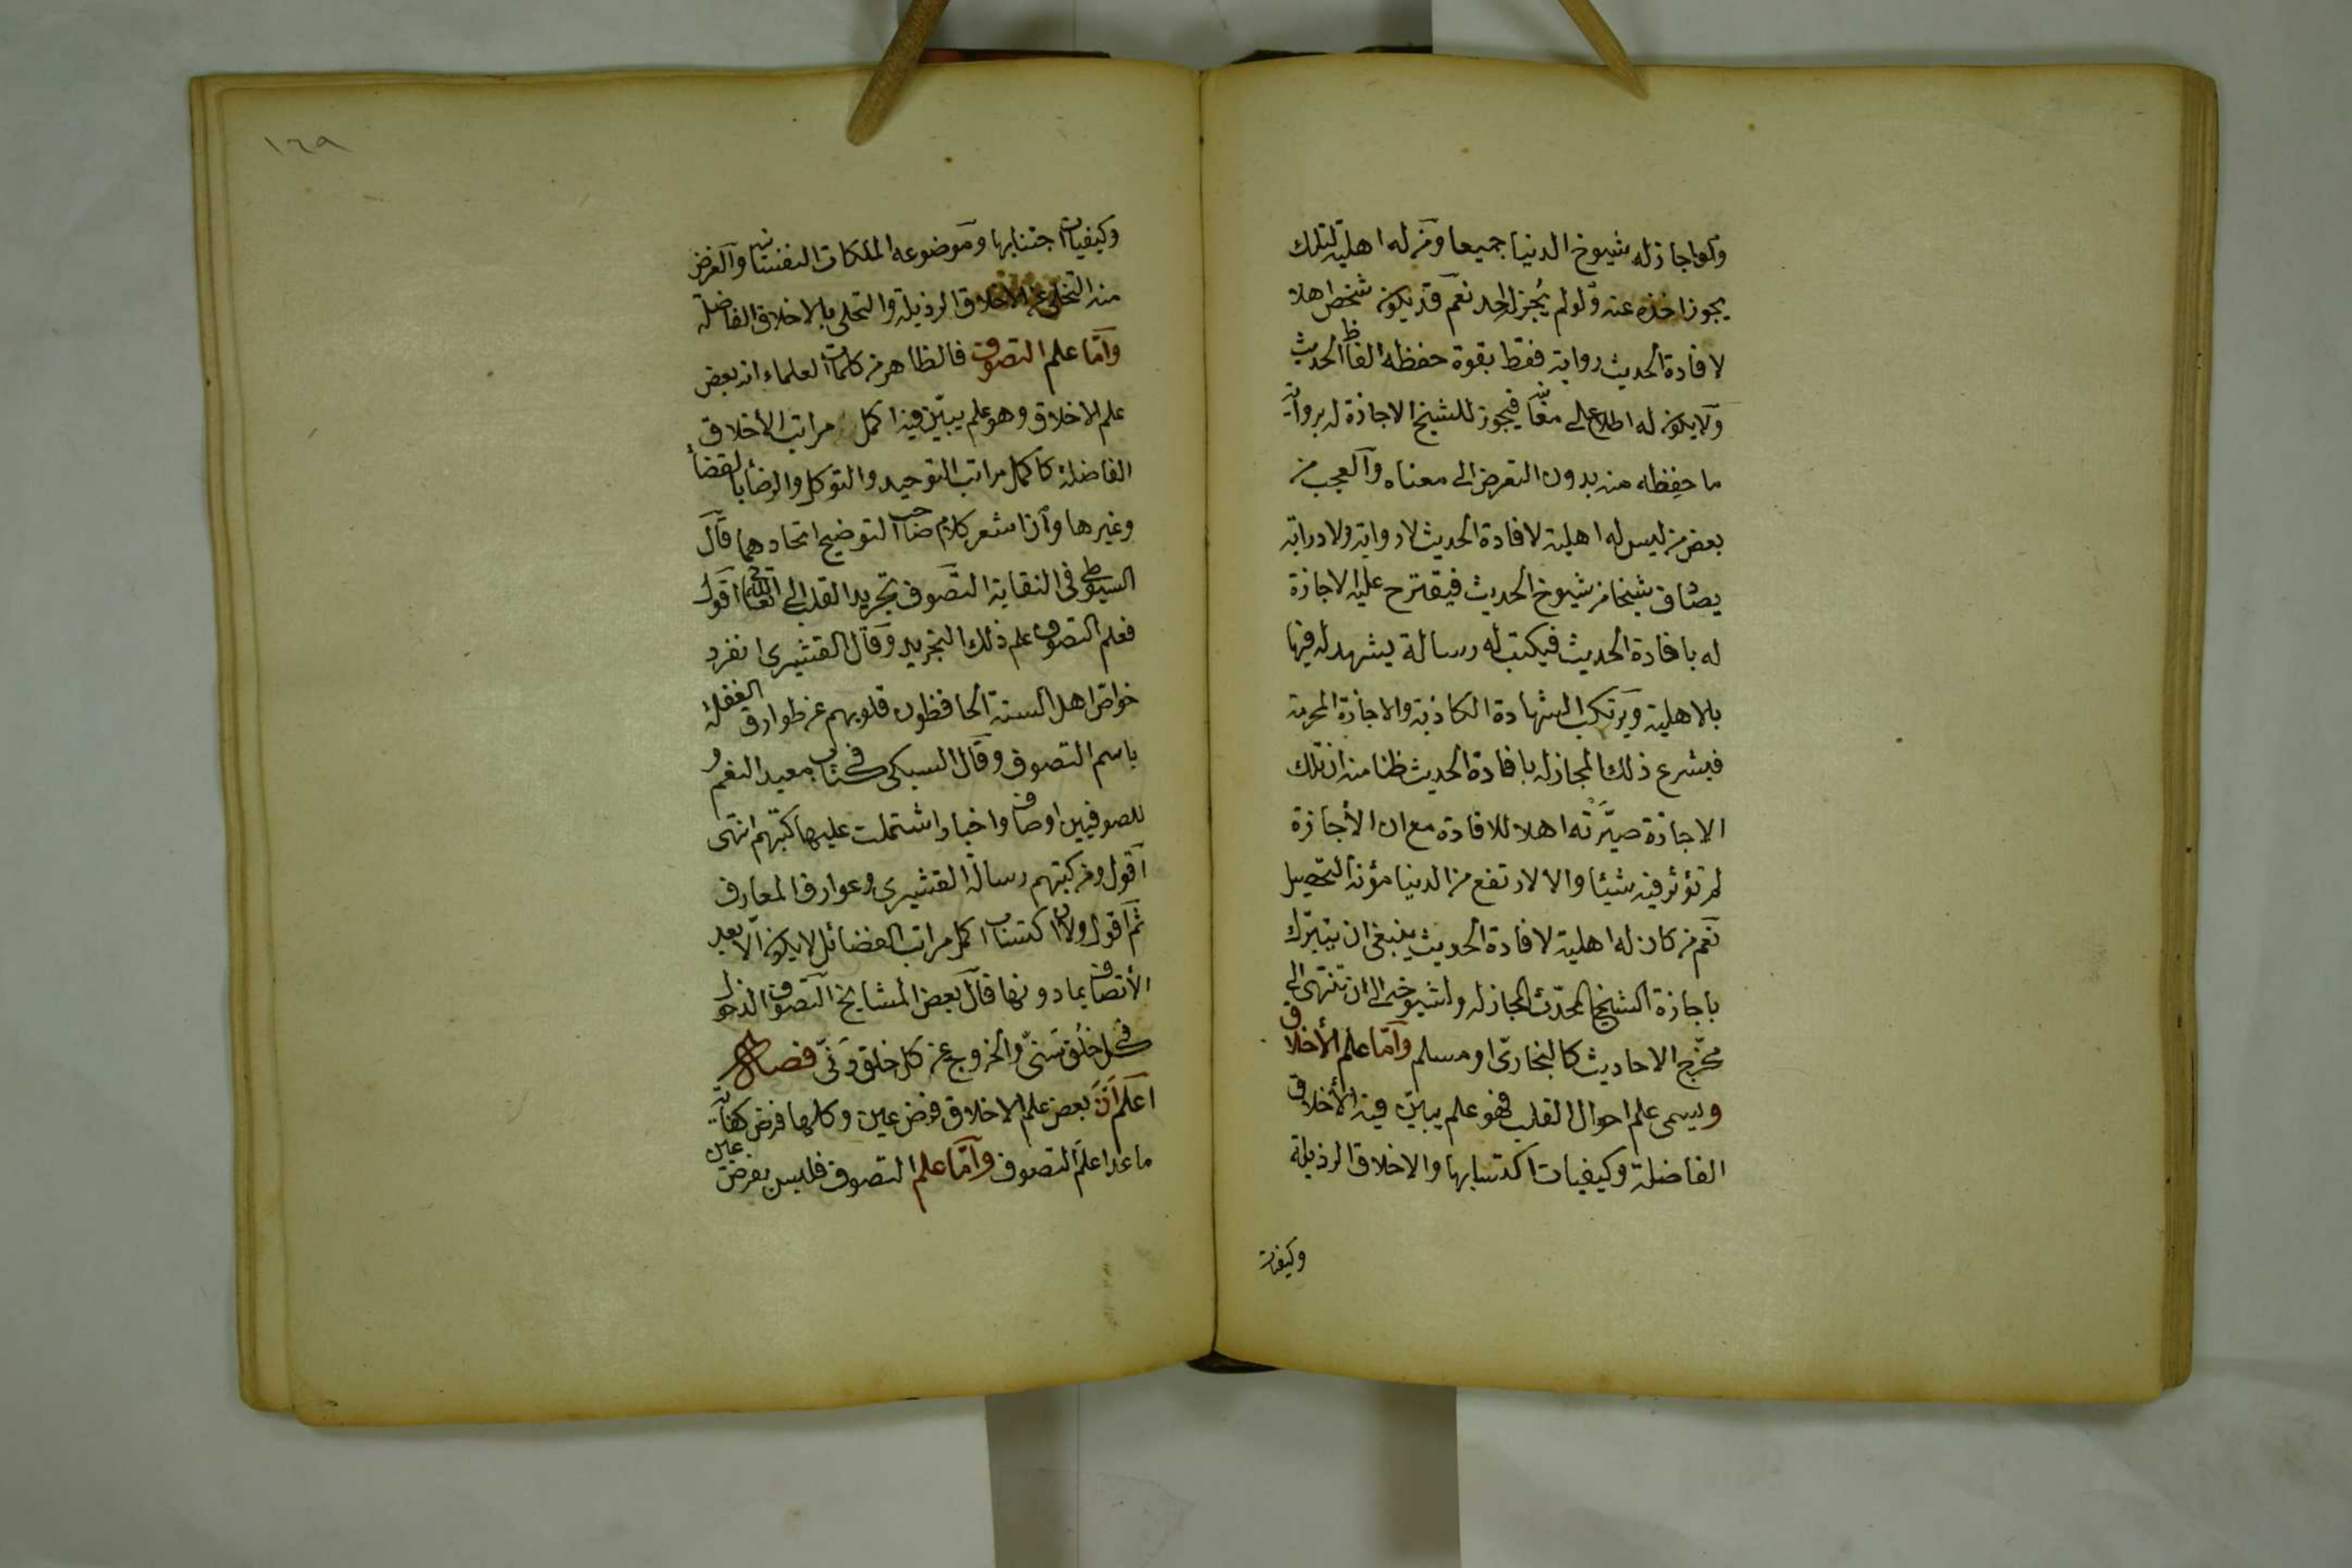 ولو اجاز له شيوخ الدنيا جميعا ومن له اهلية لتلك
يجوز اخذه عنه ولو لم يُجز له احد نعم قد يكون شخص اهلا
لافادة الحديث رواية فقط بقوة حفظه الفاظ الحديث
ولا يكون له اطلاع الى معناه فيجوز للشيخ الاجازة له برواية
ما حفِظه منه بدون التعرض الى معناه والعجب من
بعض من ليس له اهلية لافادة الحديث لا رواية ولا دراية
يصادف شيخا من شيوخ الحديث فيقترح عليه الاجازة
له بافادة الحديث فيكتب له رسالة يشهد له فيها
بالاهلية ويرتكب الشهادة الكاذبة والاجازة المحرمة
فيشرع ذلك المجاز له بافادة الحديث ظنا منه ان تلك
الاجازة صيَّرَتْه اهلا للافادة مع ان الأجازة
لم تؤثر فيه شيئا والا لارتفع من الدنيا مؤنة التحصيل
نعم من كان له اهلية لافادة الحديث ينبغى ان يتبرّك
باجازة الشيخ المحدّث المجاز له ولشيوخه الى ان تنتهى الى
مخرّج الاحاديث كالبخارىّ او مسلم وامّا علم الأخلاق
ويسمى علم احوال القلب فهو علم يبيّن فيه الأخلاق
الفاضلة وكيفيات اكتسابها والاخلاق الرذيلة
وكيفيات
١٦٩
وكيفيات اجتنابها وموضوعه الملكات النفسانية والغرض
منه التخلى عن الاخلاق الرذيلة والتحلى بالاخلاق الفاضلة
وامّا علم التصوف فالظاهر من كلمات العلماء انه بعض
علم الاخلاق وهو علم يبيّن فيه اكمل مراتب الأخلاق
الفاضلة كاكمل مراتب التوحيد والتوكل والرضأ بالقضأ
وغيرها وان اشعر كلام صاحب التوضيح اتحادهما قال
السيوطى فى النقاية التصوف تجريد القلب الى الله تعالى اقول
فعلم التصوف علم ذلك التجريد وقال القشيرى انفرد
خواصّ اهل السنة الحافظون قلوبهم عن طوارق الغفلة
باسم التصوف وقال السبكى فى كتاب معيد النعم و
للصوفيين اوصاف واخبار اشتملت عليها كتبهم انتهى
اقول ومن كتبهم رسالة القشيرى وعوارف المعارف
ثم اقول ولان اكتساب اكمل مراتب الفضائل لا يكون الّا بعد
الأتصاف بما دونها قال بعض المشايخ التصوف الدخول
فى كل خُلُق سَنىّ والخروج عن كل خلق دَنىّ فصل
اعلم اَنّ بعض علم الاخلاق فرض عين وكلها فرض كفاية
ما عدا علم التصوف وامّا علم التصوف فليس بفرض عين